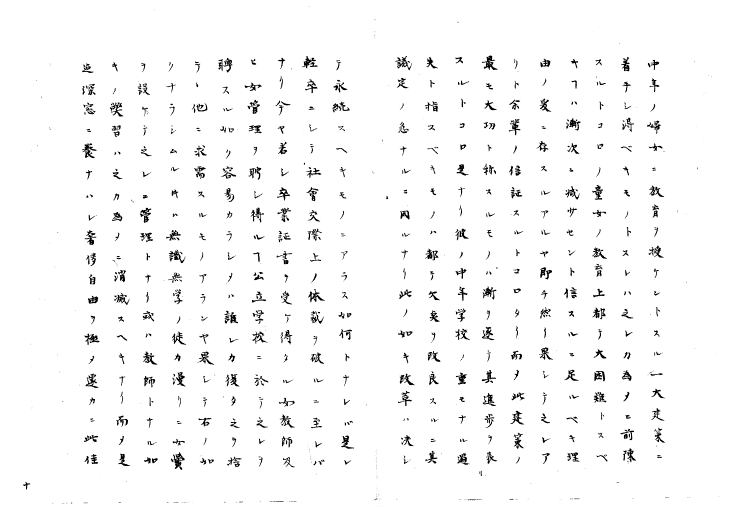 中年ノ婦女ニ教育ヲ授ケントスル一大建策ニ
着手シ得ベキモノトスレハ之レカ為メニ前陳
スルトコロノ童女ノ教育上都テ大困難トスベ
キヿハ漸次ニ減少セント信スルニ足ルベキ理
由ノ爰ニ存スルアルヤ即チ然リ果シテ之レア
リト余輩ノ信証スルトコロタリ而ヲ此建策ノ
最モ大功ト称スルモノハ漸ヲ逐テ其進歩ヲ表
スルトコロ是ナリ彼ノ中年学校ノ重モナル過
失ト指スベキモノハ都テ欠矣ヲ改良スルニ其
識定ノ急ナルニ因ルナリ此ノ如キ改革ハ決シ
テ永続スヘキモノニアラス如何トナレバ是レ
軽卒ニシテ社會交際上ノ体裁ヲ破ルニ至レバ
ナリ今ヤ若シ卒業証書ヲ受ケ得タル女教師及
ヒ女管理ヲ聘シ得ルヿ公立学校ニ於テ之レヲ
聘スル如ク容易カラシメハ誰レカ復タ之ヲ捨
テヽ他ニ求需スルモノアランヤ果シテ右ノ如
クナラシムル片ハ無識無学ノ徒カ漫リニ女黌
ヲ設ケテ之レニ管理トナリ或ハ教師トナル如
キノ獘習ハ之カ為メニ消滅スヘキナリ而ヲ是
迠深窓ニ養ナハレ奢侈自由ヲ極メ還カニ此佳
十